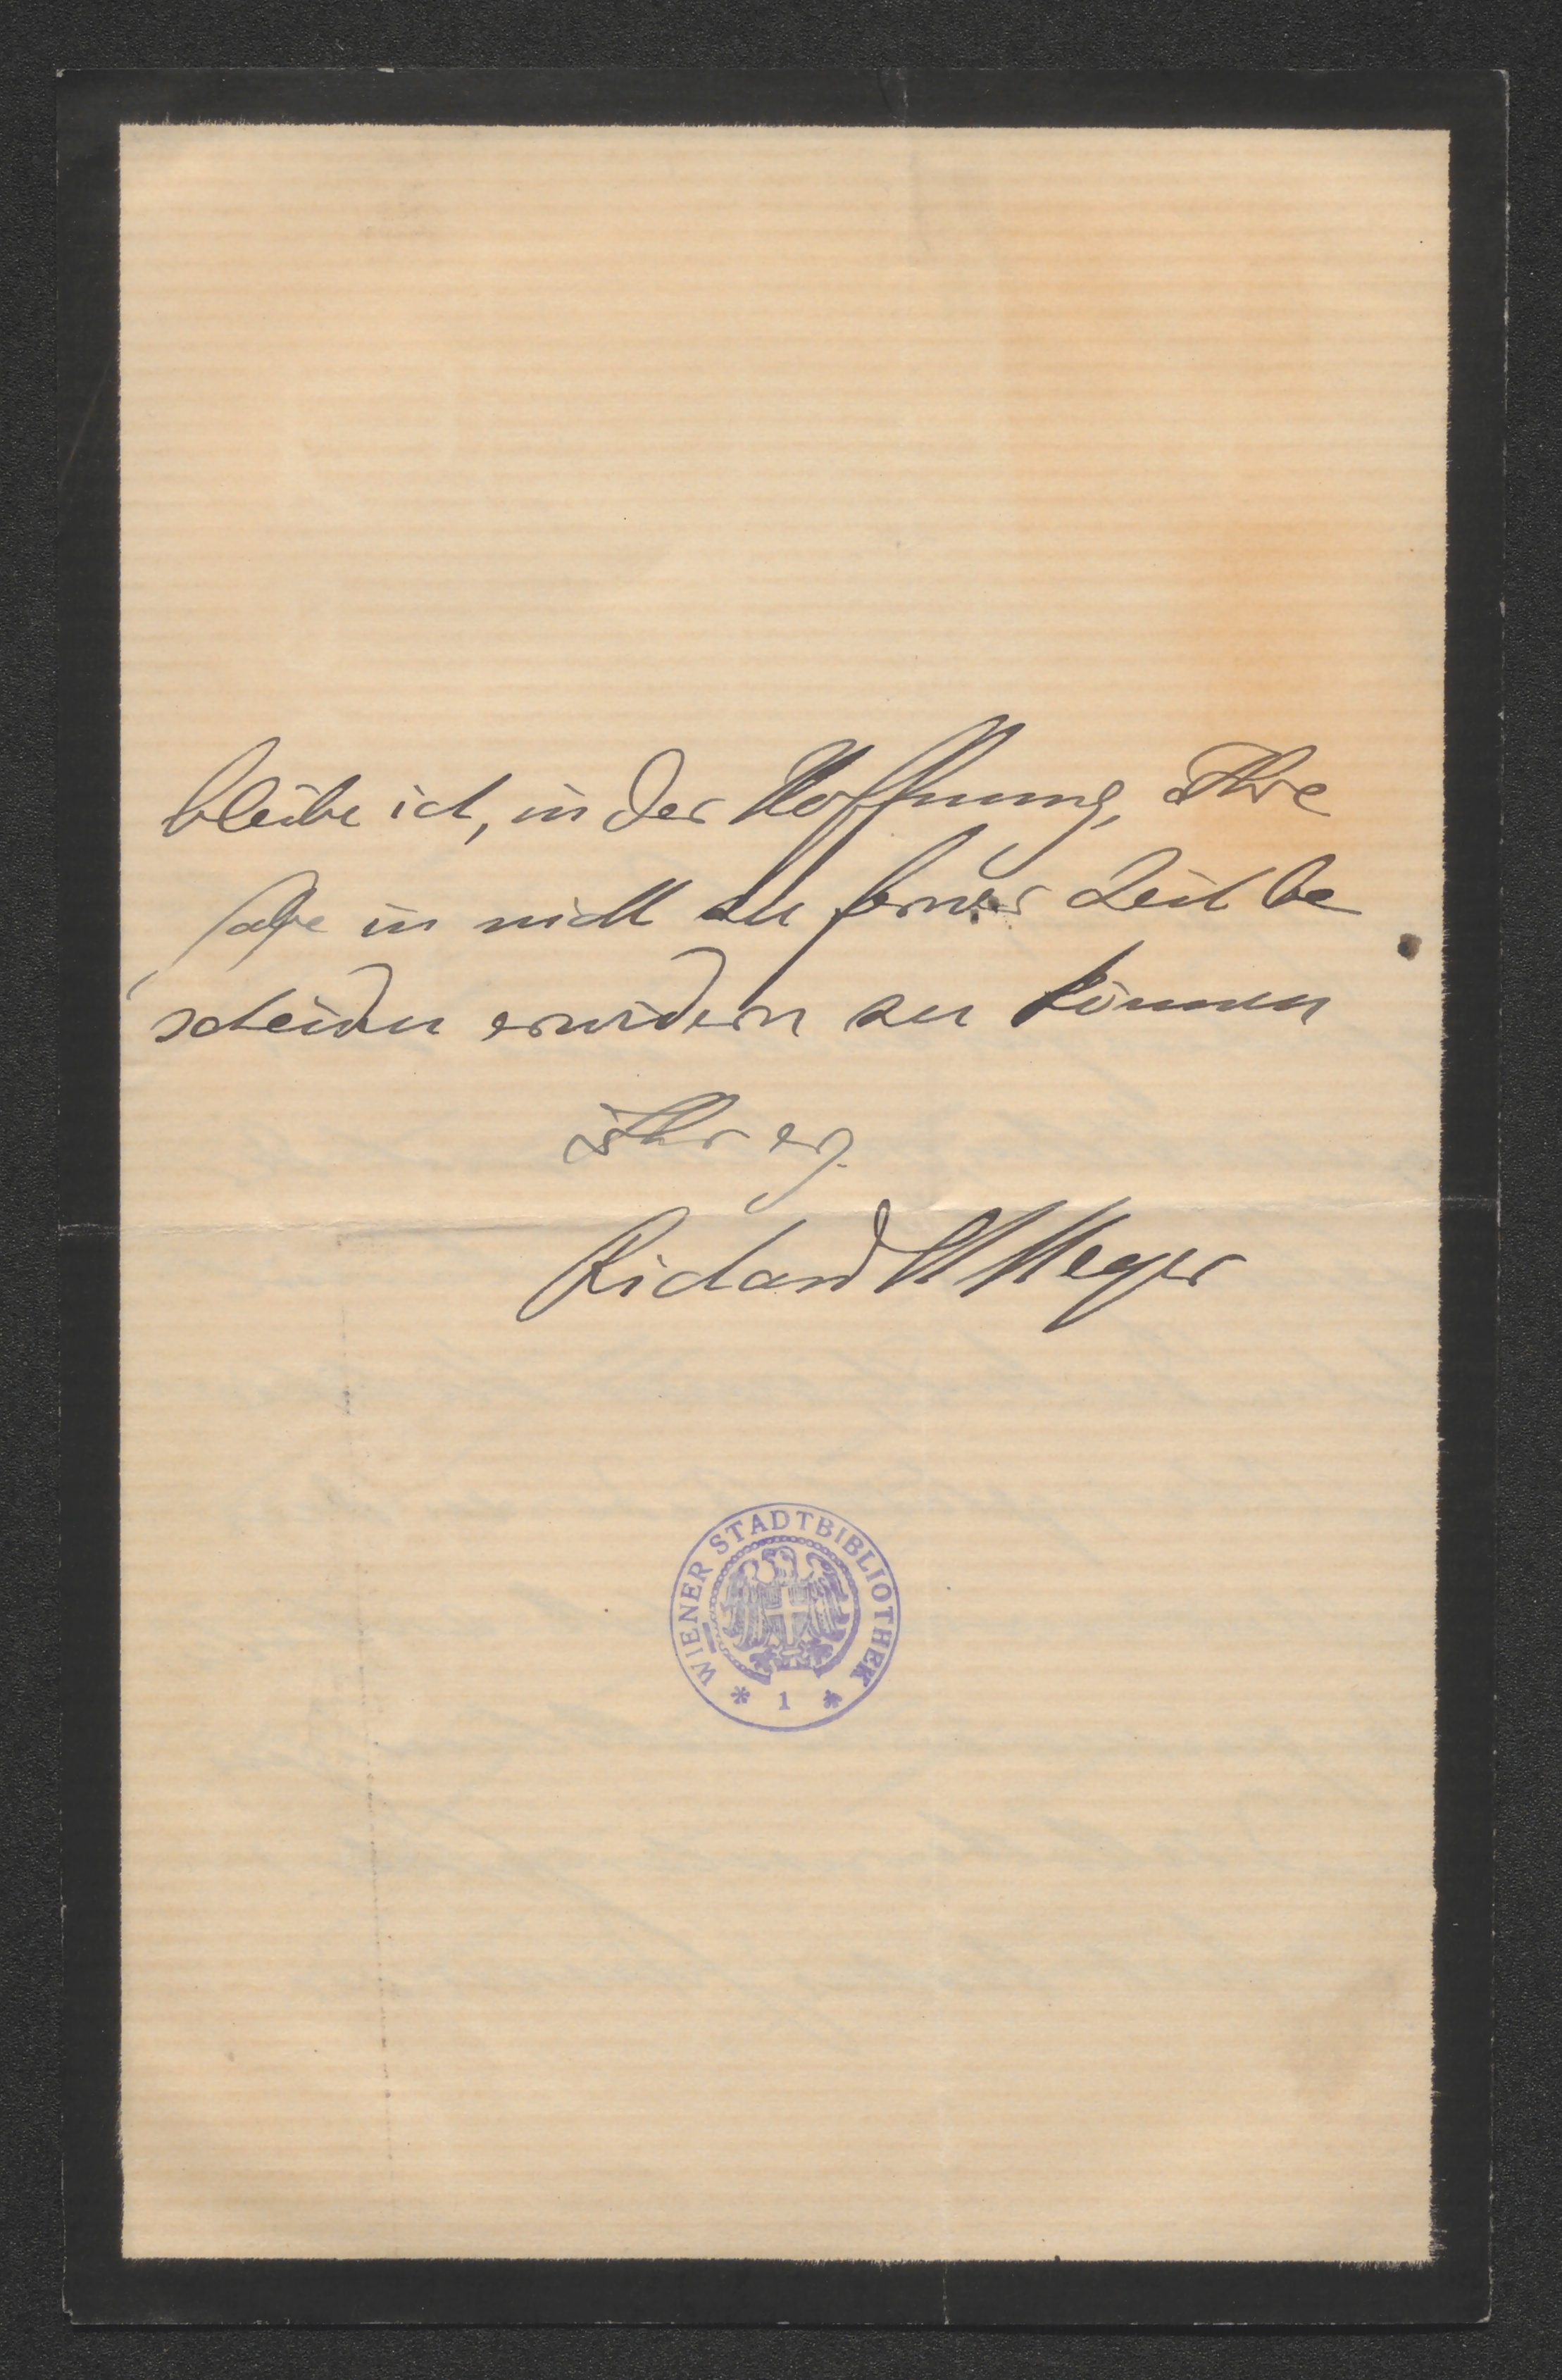 bleibe ich, in der Hoffnung, Ihre
Gabe in nicht zu ferner Zeit be
scheiden erwidern zu können
Ihr erg.
Richard M Meyer
WIENER STADTBIBLIOTHEK
* 1 *